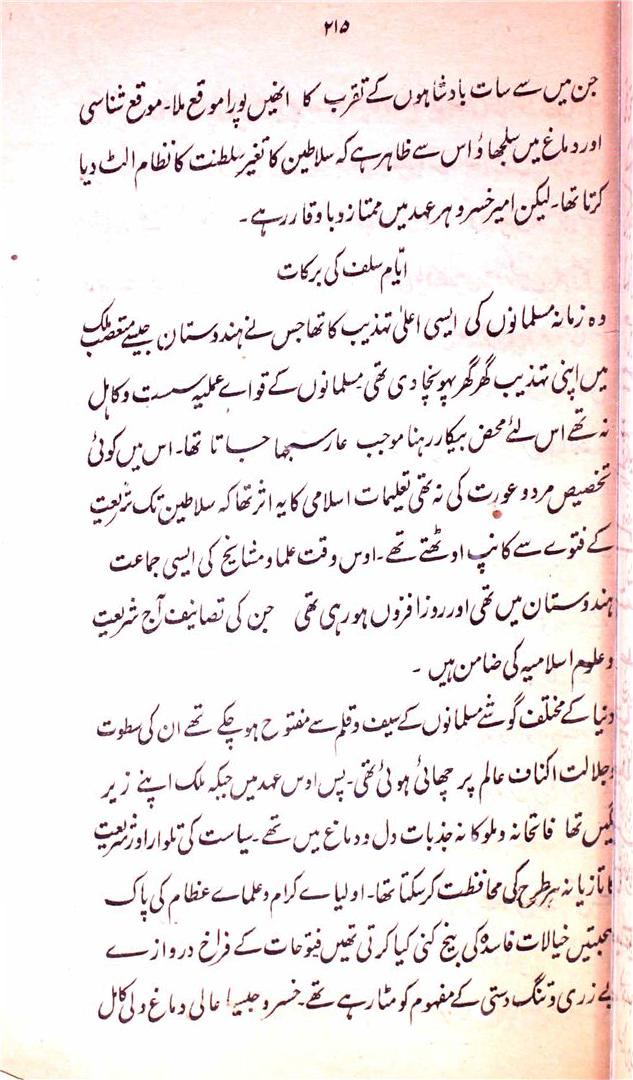 ۲۱۵
جن میں سے سات بادشاہوں کے تقرب کا انھیں پورا موقع ملا۔ موقع شناسی
اور دماغ میں سلجھاؤ اس سے ظاہر ہے کہ سلاطین کا تغیر سلطنت کا نظام الٹ دیا
کرتا تھا۔ لیکن امیر خسرو ہر عہد میں ممتاز و باوقار رہے۔
ایّام سلف کی برکات
وہ زمانہ مسلمانوں کی ایسی اعلیٰ تہذیب کا تھا جس نے ہندوستان جیسے متعصب ملک
میں اپنی تہذیب گھر گھر پہونچا دی تھی۔ مسلمانوں کے قواے عملیہ سست و کاہل
نہ تھے اس لئے محض بیکار رہنا موجب عار سمجھا جاتا تھا۔ اس میں کوئی
تخصیص مرد و عورت کی نہ تھی تعلیمات اسلامی کا یہ اثر تھا کہ سلاطین تک شریعت
کے فتوے سے کانپ اوٹھتے تھے۔ اوس وقت علما و مشایخ کی ایسی جماعت
ہندوستان میں تھی اور روز افزوں ہو رہی تھی جن کی تصانیف آج شریعت
و علوم اسلامیہ کی ضامن ہیں ۔
دنیا کے مختلف گوشے مسلمانوں کے سیف و قلم سے مفتوح ہو چکے تھے ان کی سطوت
و جلالت اکناف عالم پر چھائی ہوئی تھی۔ پس اوس عہد میں جبکہ ملک اپنے زیر
نگیں تھا فاتحانہ و ملوکانہ جذبات دل و دماغ میں تھے۔ سیاست کی تلوار اور شریعت
کا تازیانہ ہر طرح کی محافظت کر سکتا تھا۔ اولیاے کرام و علماے عظام کی پاک
صحبتیں خیالات فاسدہ کی بیخ کنی کیا کرتی تھیں فتوحات کے فراخ دروازے
بے زری و تنگ دستی کے مفہوم کو مٹا رہے تھے۔ خسرو جیسا عالی دماغ ولی کامل